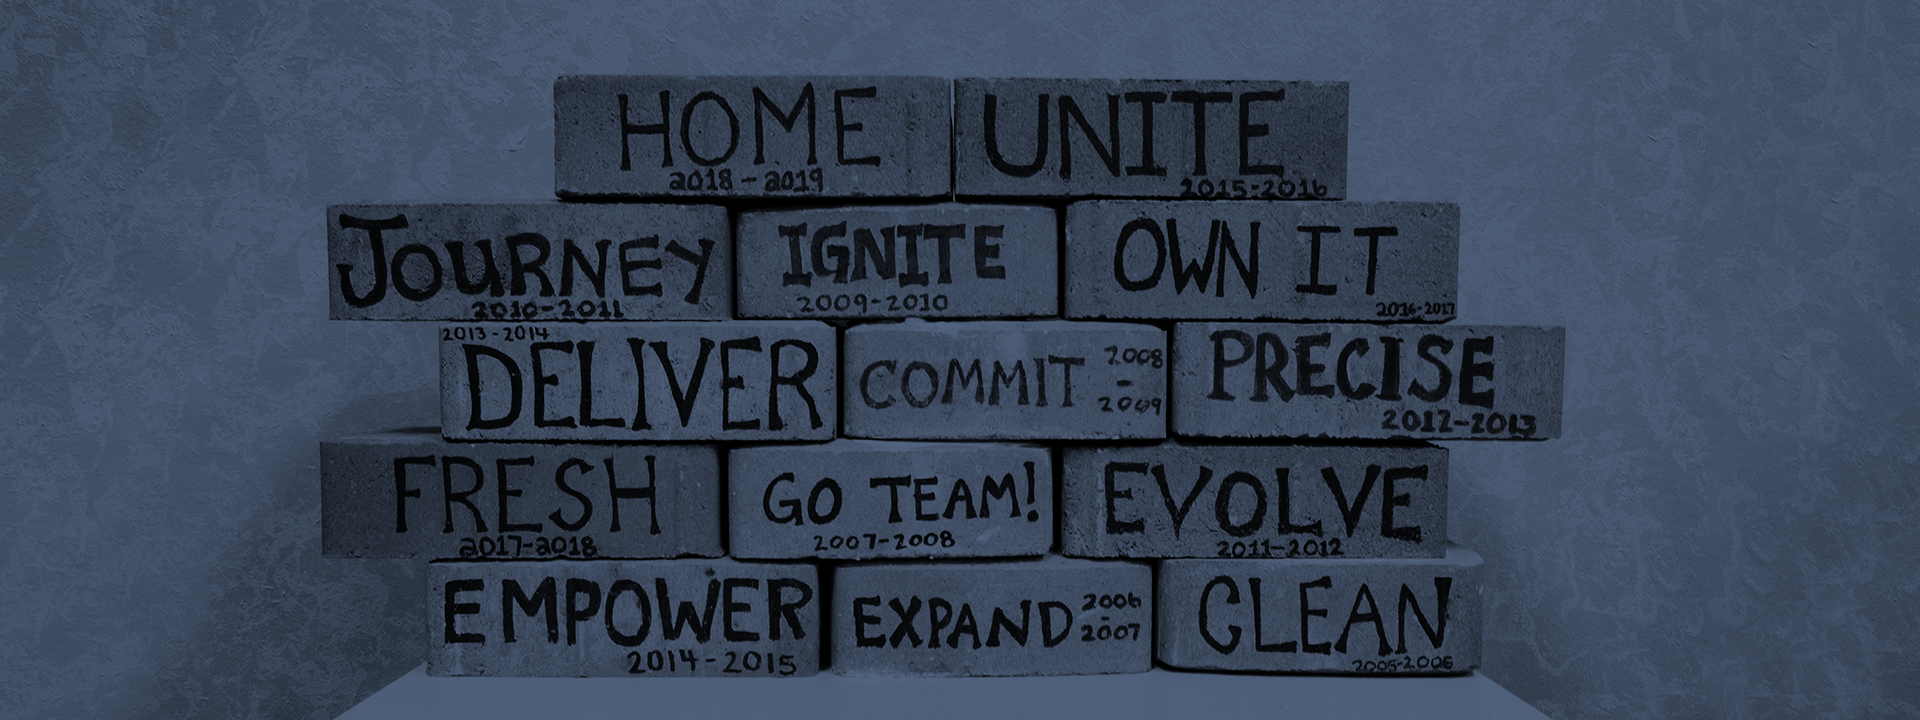 HOME
2018-2019
UNITE
2015-2016
JOURNEY
2010-2011
IGNITE
2009-2010
OWN IT
2016-2017
2013-2014
DELIVER
COMMIT
2008
-
2009
PRECISE
2012-2013
FRESH
2017-2018
GO TEAM!
2007-2008
EVOLVE
2011-2012
EMPOWER
2014-2015
EXPAND
2006
-
2007
CLEAN
2005-2006